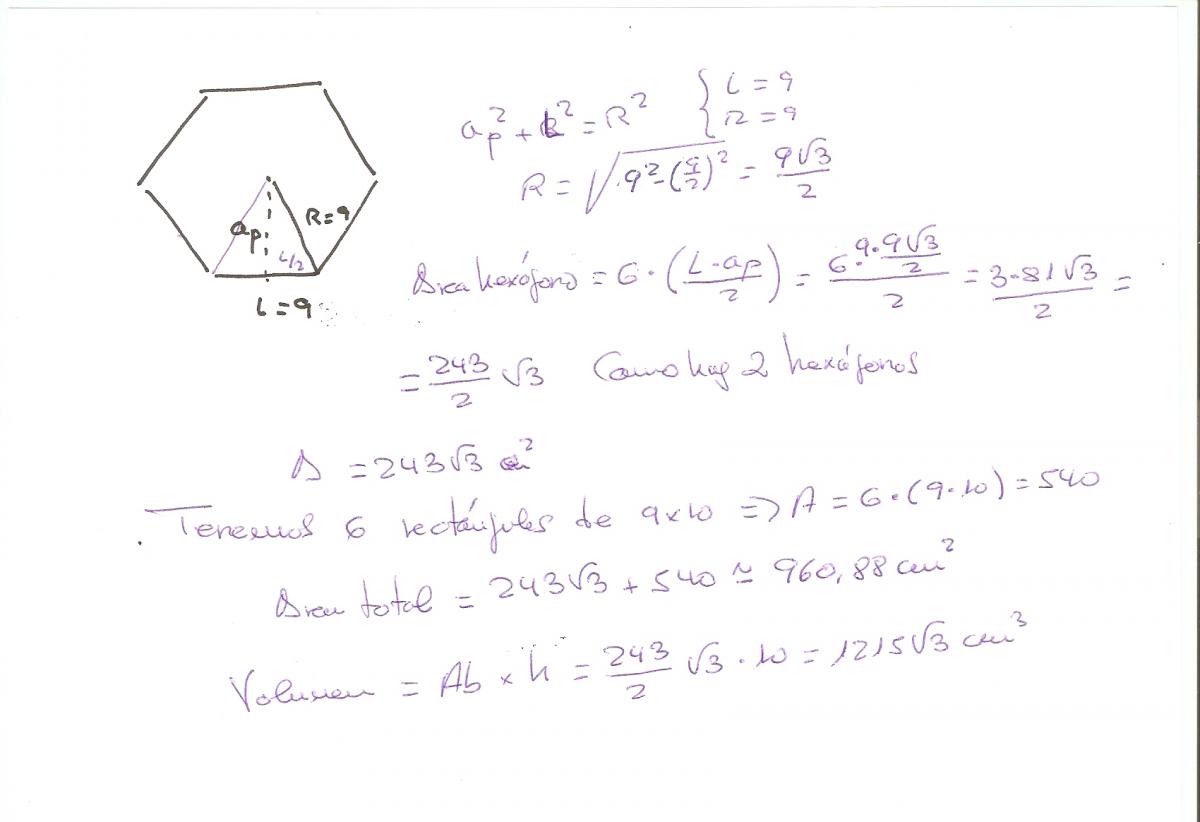 a_p² + L² = R² { L = 9
R = 9
R = √(9² - (9/2)²) = 9√3/2
ap
R=9
L/2
L=9
Area hexágono = 6 · (L·ap/2) = 6·9·9√3/2 / 2 = 3·81√3/2 =
= 243/2 √3 Como hay 2 hexágonos
A = 243√3 cm²
Tenemos 6 rectángulos de 9x10 => A = 6·(9·10) = 540
Area total = 243√3 + 540 ≃ 960,88 cm²
Volumen = Ab x h = 243/2 √3 · 10 = 1215√3 cm³